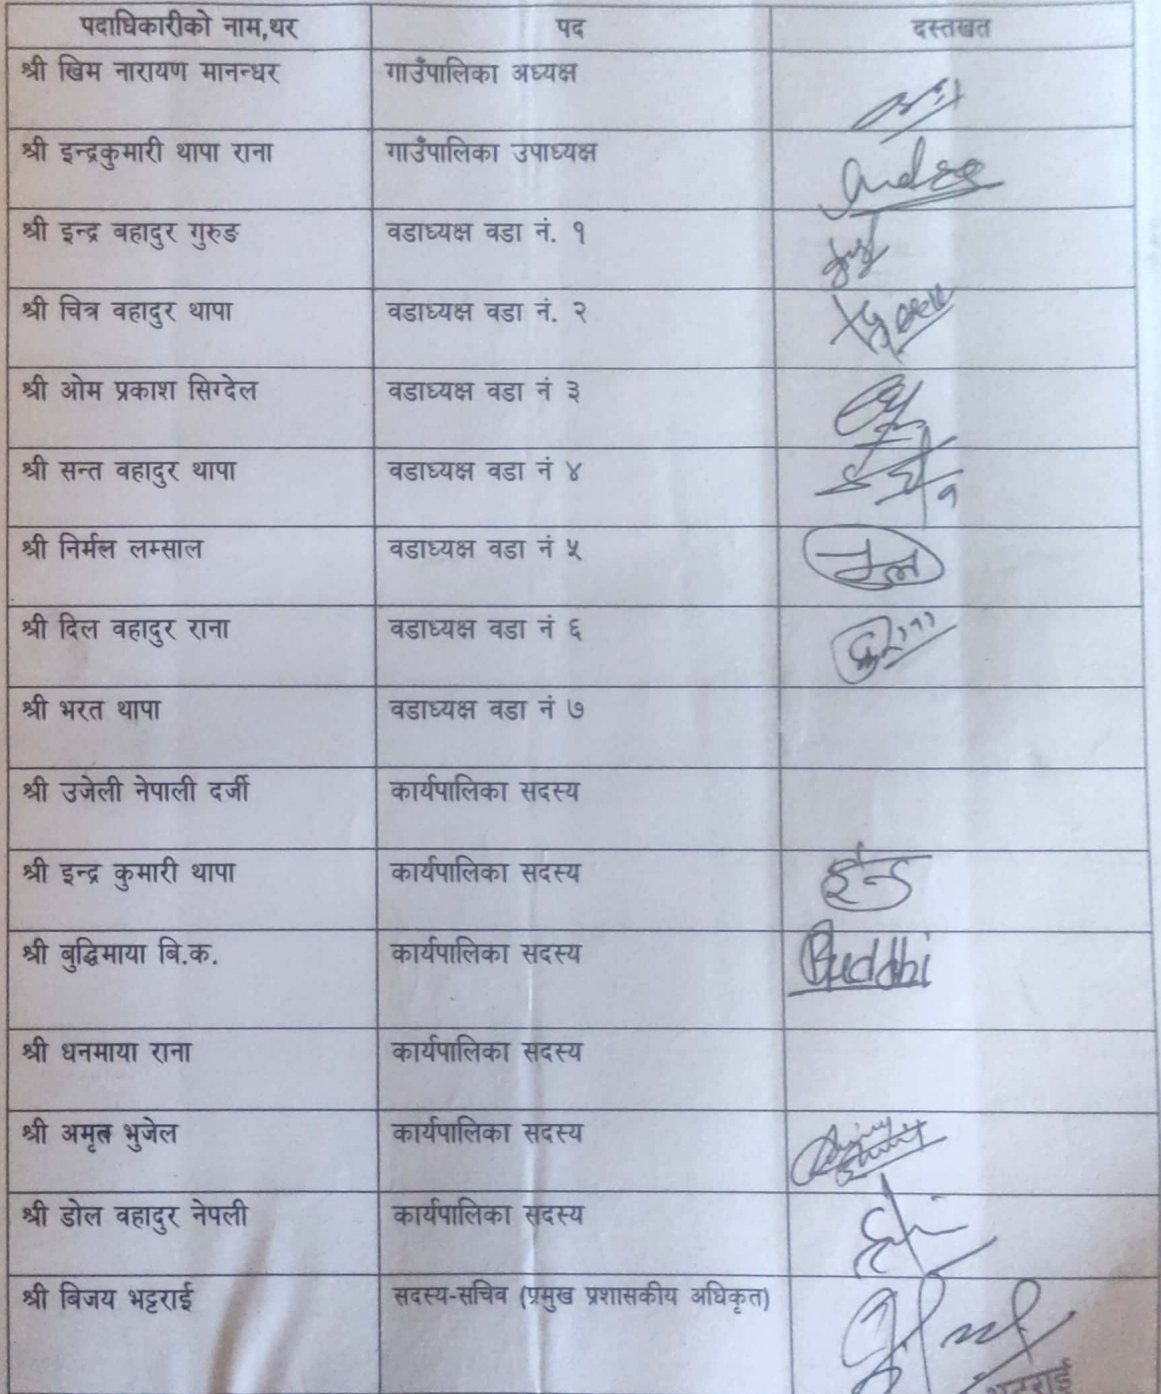 पदाधिकारीको नाम,थर पद दस्तखत
श्री खिम नारायण मानन्धर गाउँपालिका अध्यक्ष
श्री इन्द्रकुमारी थापा राना गाउँपालिका उपाध्यक्ष
श्री इन्द्र बहादुर गुरुङ वडाध्यक्ष वडा नं. १
श्री चित्र वहादुर थापा वडाध्यक्ष वडा नं. २
श्री ओम प्रकाश सिग्देल वडाध्यक्ष वडा नं ३
श्री सन्त वहादुर थापा वडाध्यक्ष वडा नं ४
श्री निर्मल लम्साल वडाध्यक्ष वडा नं ५
श्री दिल वहादुर राना वडाध्यक्ष वडा नं ६
श्री भरत थापा वडाध्यक्ष वडा नं ७
श्री उजेली नेपाली दर्जी कार्यपालिका सदस्य
श्री इन्द्र कुमारी थापा कार्यपालिका सदस्य
श्री बुद्धिमाया बि.क. कार्यपालिका सदस्य Buddhi
श्री धनमाया राना कार्यपालिका सदस्य
श्री अमृत भुजेल कार्यपालिका सदस्य
श्री डोल वहादुर नेपली कार्यपालिका सदस्य
श्री बिजय भट्टराई सदस्य-सचिव (प्रमुख प्रशासकीय अधिकृत)